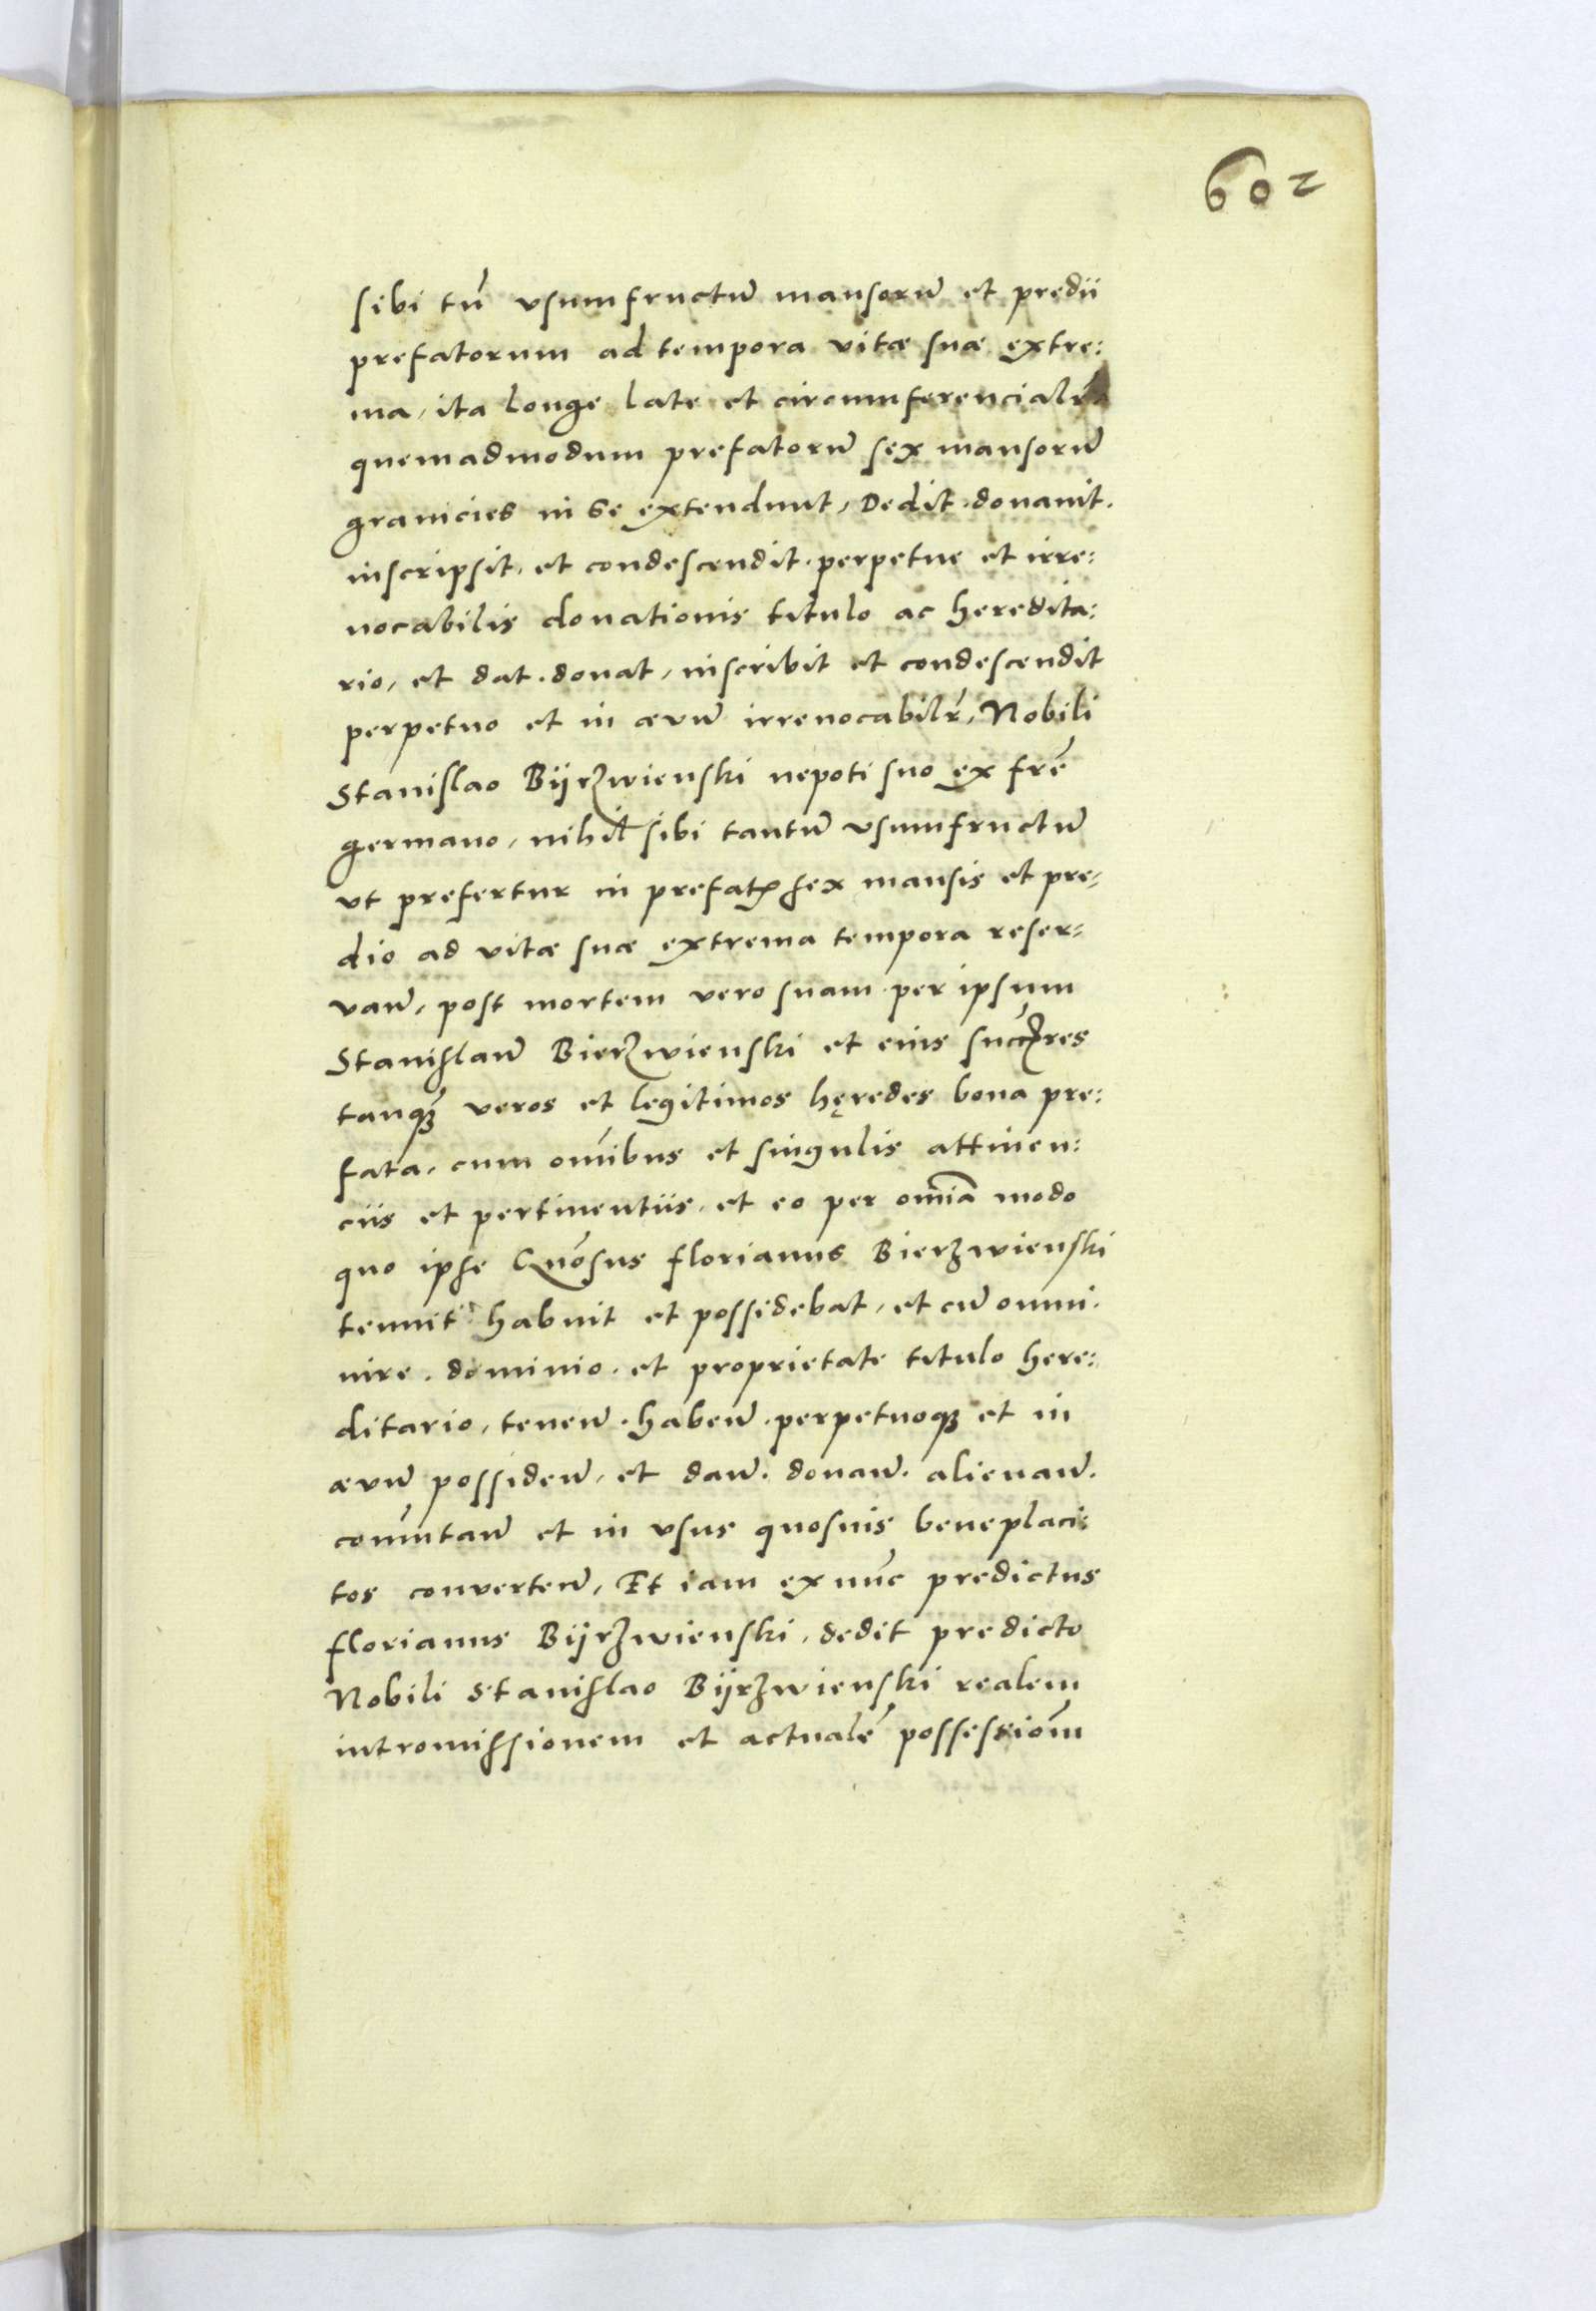 602
sibi tñ vsumfructũ mansorũ et predii
prefatorum ad tempora vitæ suæ extre:
ma, ita longe late et circumferencialr̃
quemadmodum prefatorũ sex mansorũ
granicies in se extendunt, Dedit. donauit.
inscripsit, et condescendit. perpetue et irre:
uocabilis donationis titulo ac heredita:
rio, et dat. donat, inscribit et condescendit
perpetuo et in æuũ irreuocabilr̃, Nobili
Stanislao Bÿrzwienski nepoti suo ex frẽ
germano, nihil sibi tantũ vsumfructũ
vt prefertur in prefatꝭ sex mansis et pre⸗
dio ad vitæ suæ extrema tempora reser⸗
vañ, post mortem vero suam per ipsum
Stanislaũ Bierzwienski et eius succ̃res
tanqꝫ veros et legitimos hęredes bona pre:
fata, cum om̃ibus et singulis attinen:
ciis et pertinentiis, et eo per om̃ia modo
quo ipse Gñosus florianus Bierzwienski
tenuit habuit et possidebat, et cũ omni.
iure. dominio. et proprietate titulo here:
ditario, teneñ. habeñ. perpetuoqꝫ et in
æuũ possideñ, et dañ. donañ. alienañ.
com̃utañ et in vsus quosuis beneplaci:
tos converteñ, Et iam ex nũc predictus
florianus Bÿrzwienski, dedit predicto
Nobili Stanislao Bÿrzwienski realem
intromissionem et actualẽ possessiom̃